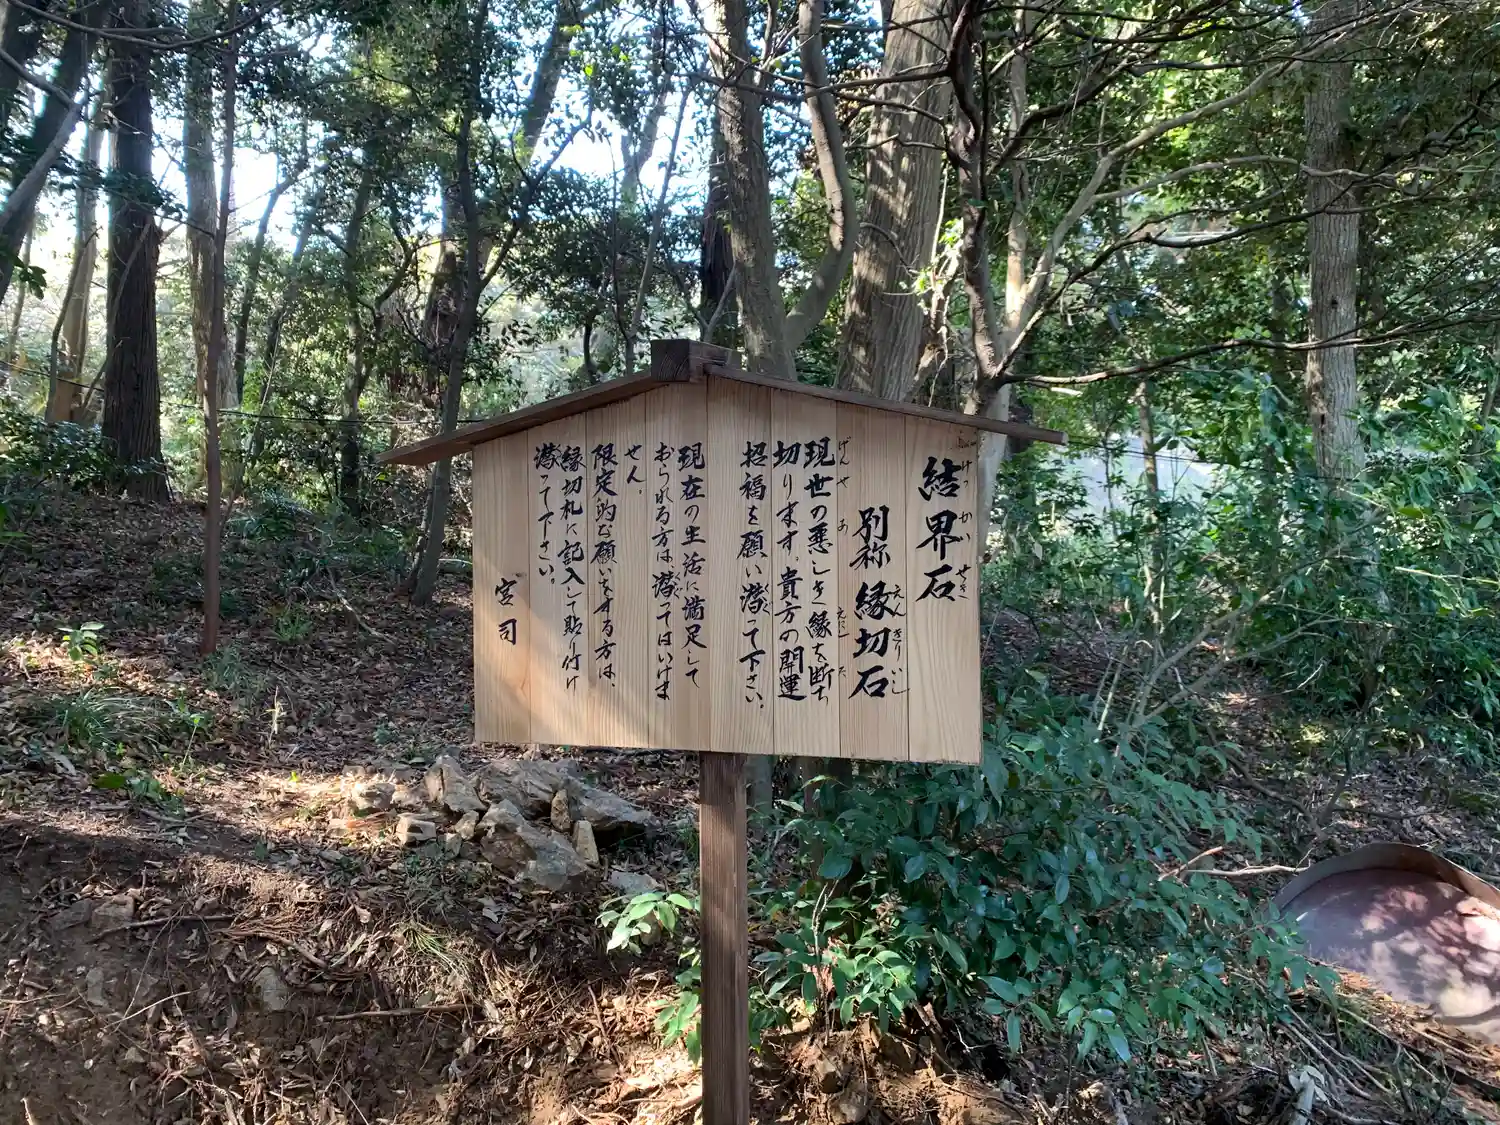 結界石
別称 縁切石
現世の悪しき縁を断ち
切ります。貴方の開運
招福を願い潜って下さい。
現在の生活に満足して
おられる方は潜ってはいけま
せん。
限定的な願いをする方は、
縁切札に記入して貼り付け
潜って下さい。
宮司